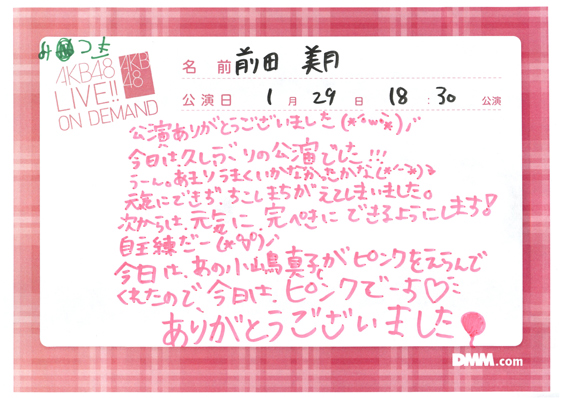 みつき
AKB48
LIVE!!
ON DEMAND
AKB
48
名前 前田 美月
公演日 1月29日 18:30 公演
公演ありがとうございました(*^ω^*)ノ
今日は久しづりの公演でした!!!
うーん。あまりうまくいかなかったかな(*^-^*)
元気にできず、ちこしまちがえてしまいました。
次からは、元気に完ぺきにできるようにします!
自主練だー(*°∀°)ノ
今日は、あの小嶋真子がピンクをえらんで
くれたので、今日は、ピンクでーち♡
ありがとうございました
DMM.com